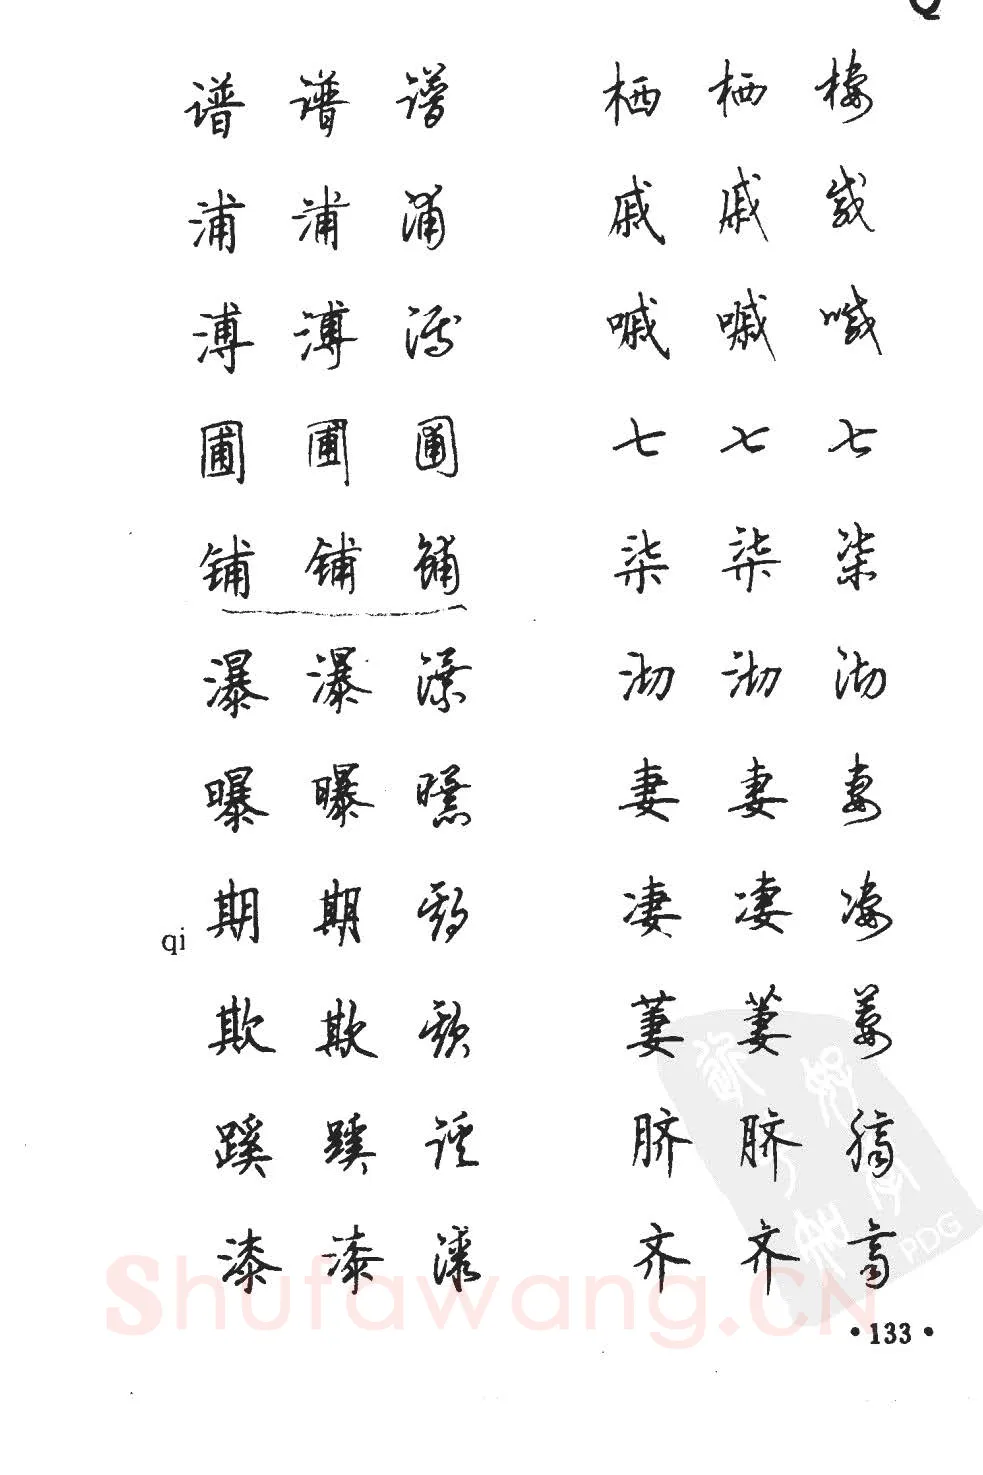 Q
谱 谱 谱
浦 浦 浦
溥 溥 溥
圃 圃 圃
铺 铺 铺
瀑 瀑 瀑
曝 曝 曝
qi 期 期 期
欺 欺 欺
蹊 蹊 蹊
漆 漆 漆
栖 栖 棲
戚 戚 戚
嘁 嘁 嘁
七 七 七
柒 柒 柒
沏 沏 沏
妻 妻 妻
凄 凄 凄
萋 萋 萋
脐 脐 臍
齐 齐 齊
·133·
Shufawang.CN
PDG